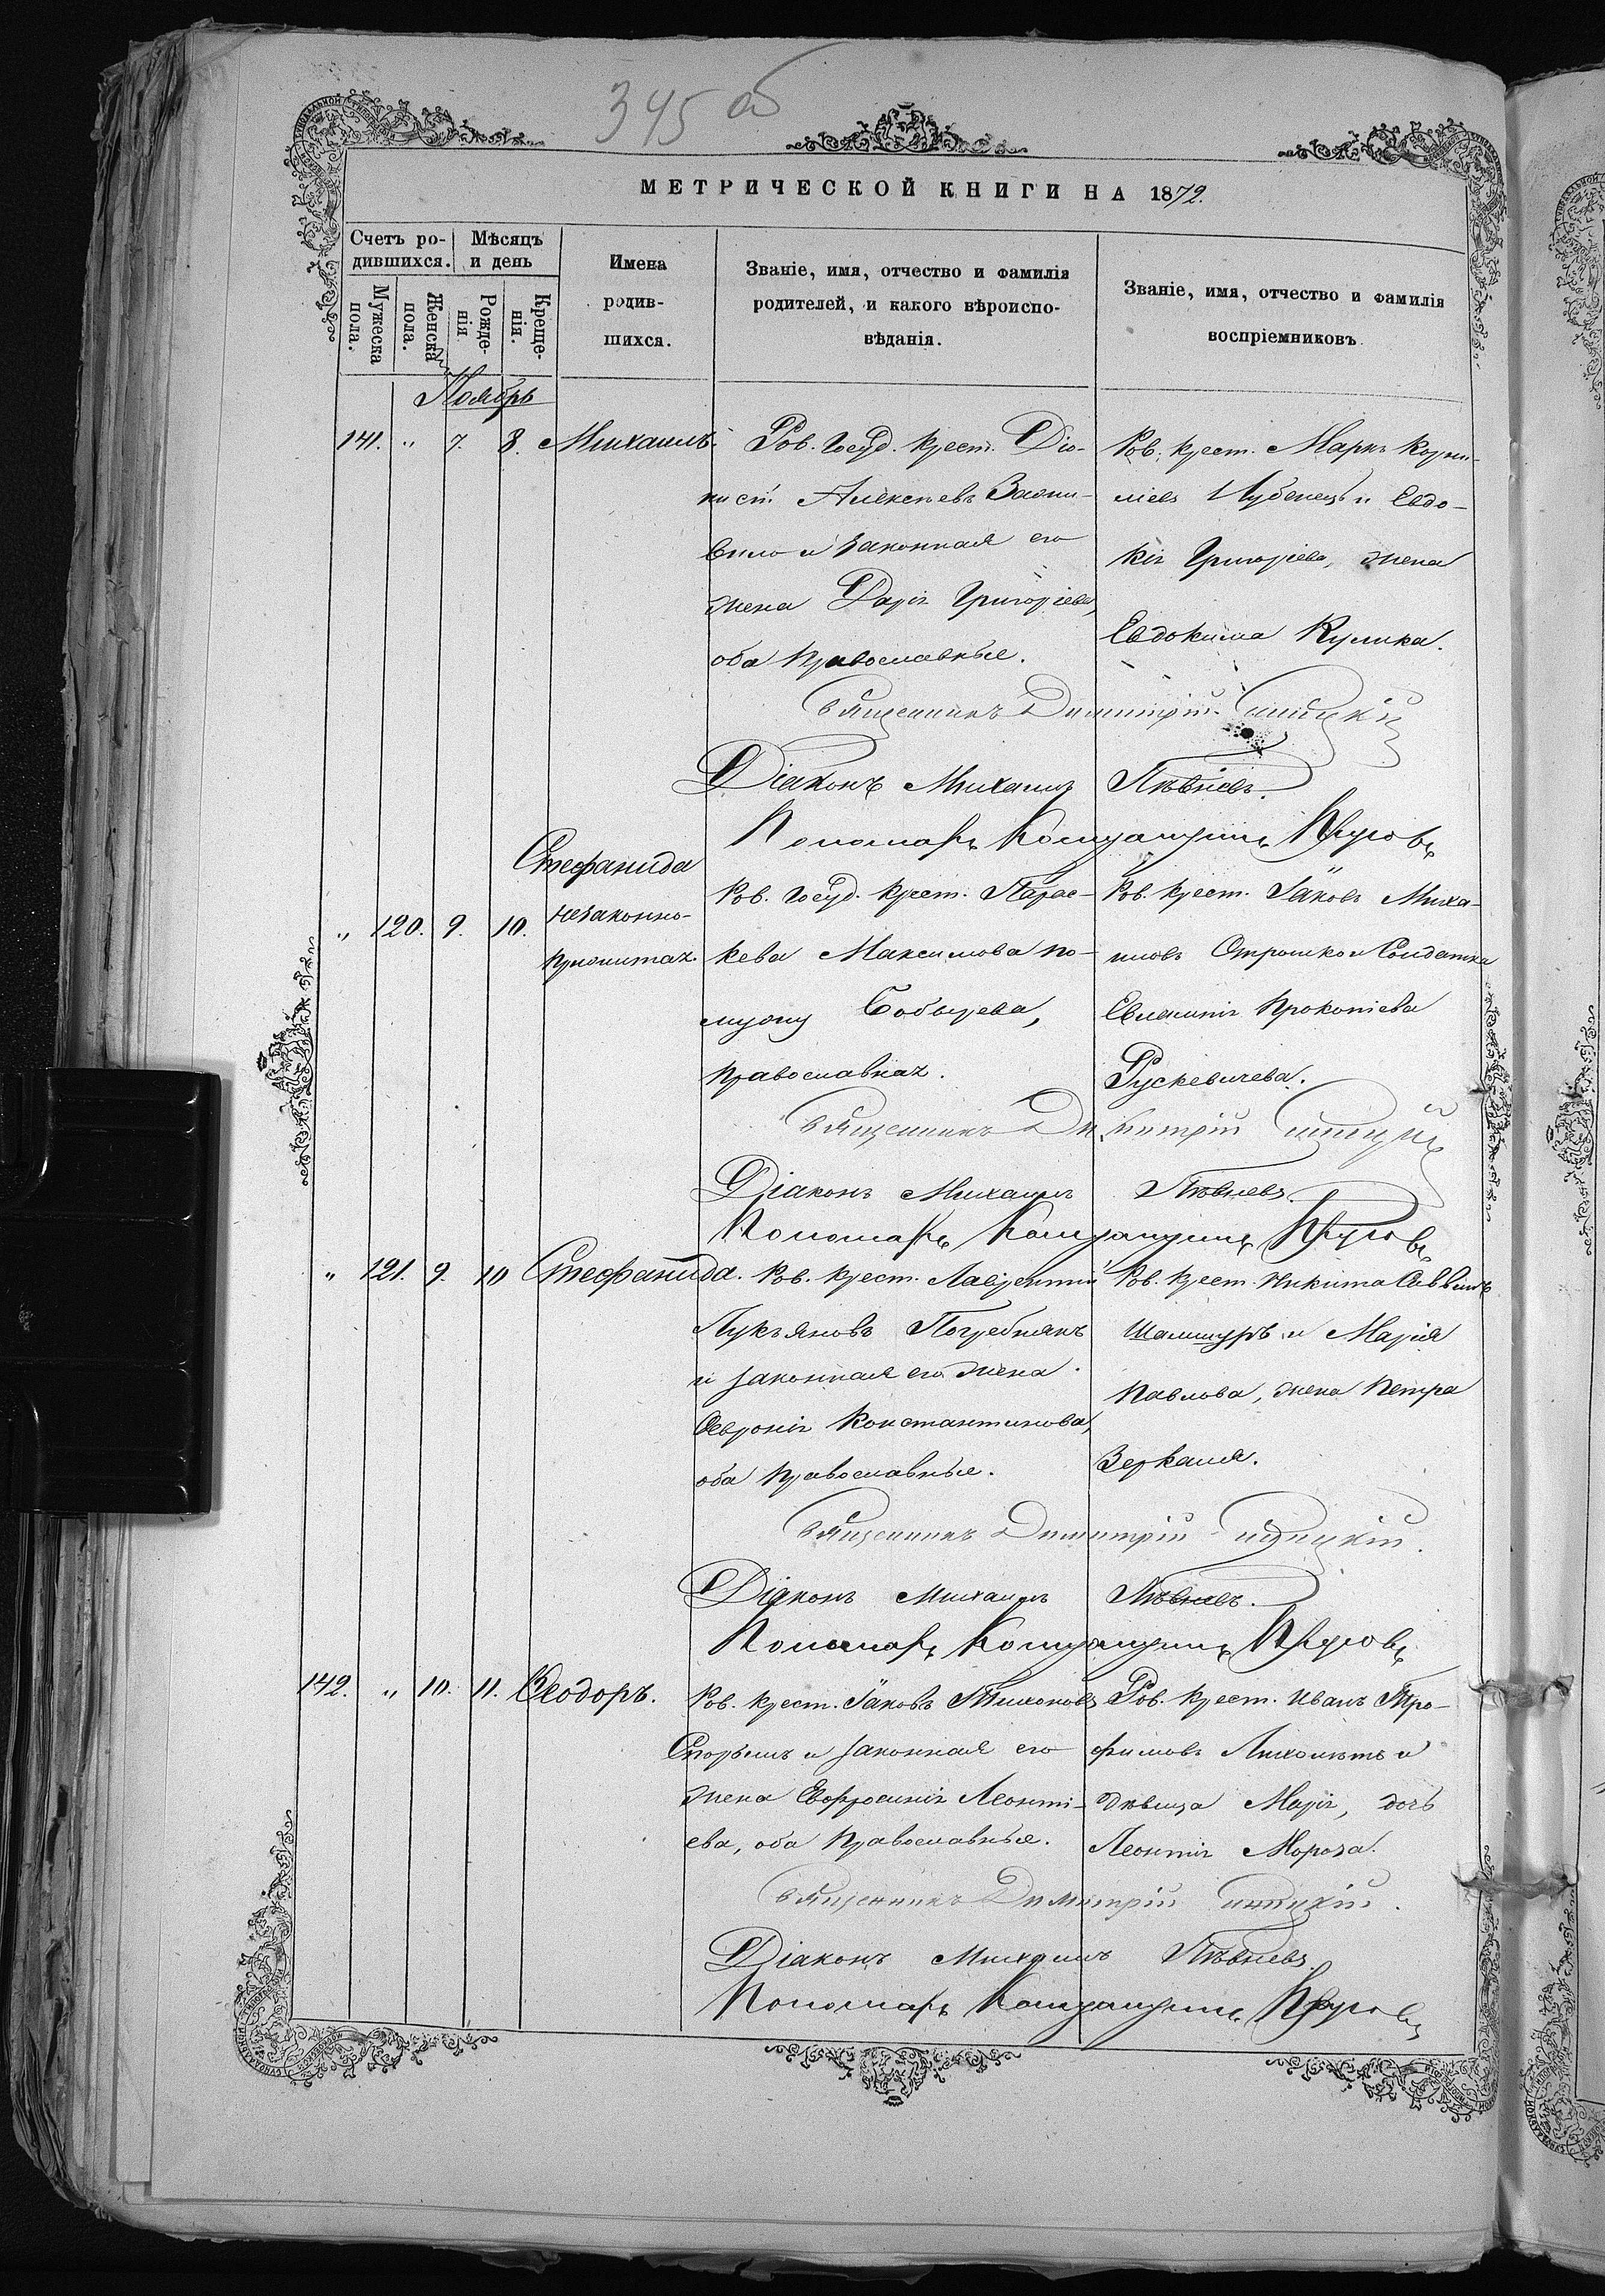 345 об
МЕТРИЧЕСКОЙ КНИГИ НА 1872.
Счетъ ро-
дившихся.
Мѣсяцъ
и день
Мужеска
пола.
Женска
пола.
Рожде-
нія
Креще-
нія.
Имена
родив-
шихся.
Званіе, имя, отчество и фамилія
родителей, и какого вѣроиспо-
вѣданія.
Званіе, имя, отчество и фамилія
воспріемниковъ
Ноябрь
141. " 7. 8. Михаилъ.
Ров. Госуд. крест. Діо-
нисій Алексѣевъ
и законная его
жена Дарія Григоріева,
оба Православные.
Ров. крест. Маркъ Корни-
ліевъ Лубенецъ и Евдо-
кія Григоріева, жена
Евдокима Кулика.
Священникъ Димитрій
Діаконъ Михаилъ Пѣвневъ.
Пономарь
" 120. 9. 10. Стефанида
незаконно-
прижитая.
Ров. Госуд. крест. Парас-
кева Максимова по
мужу Бобырева,
Православная.
Ров. крест. Іаковъ Миха-
иловъ Отрошко и Солдатка
Евлампія Прокопіева
Рускевичева.
Священникъ Димитрій
Діаконъ Михаилъ Пѣвневъ.
Пономарь
" 121. 9. 10 Стефанида.
Ров. крест. Лаврентій
Лукьяновъ Погребнякъ
и законная его жена
Февронія Константинова,
оба Православные.
Ров. крест. Никита Саввинъ
Шамшуръ и Марія
Павлова, жена Петра
Зеркаля.
Священникъ Димитрій
Діаконъ Михаилъ Пѣвневъ.
Пономарь
142. " 10. 11. Ѳеодоръ.
Ров. крест. Іаковъ Тихоновъ
и законная его
жена Евфросинія Леонті-
ева, оба Православные.
Ров. крест. Иванъ Тро-
фимовъ Лихолѣтъ и
дѣвица Марія, дочь
Леонтія Мороза.
Священникъ Димитрій
Діаконъ Михаилъ Пѣвневъ.
Пономарь